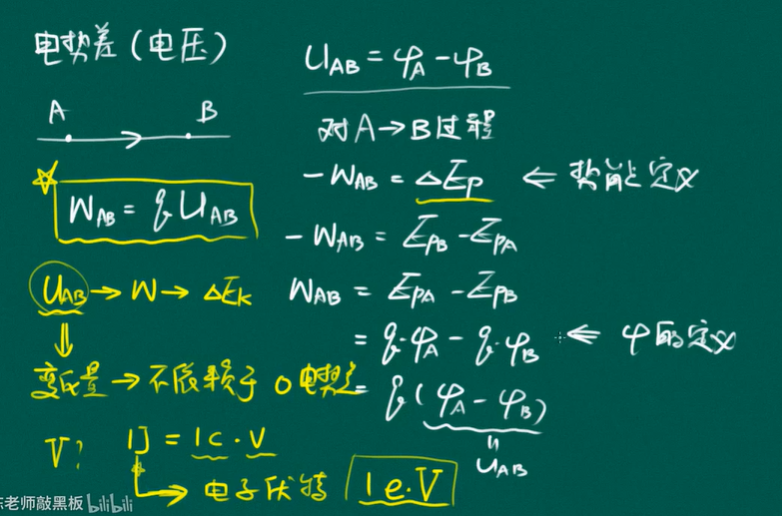 电势差(电压)
A B
W_AB = qU_AB
U_AB → W → ΔE_K
⇓
变化量 → 不依赖于 0 电势点
V? 1J = 1C·V
→ 电子伏特 1e·V
U_AB = φ_A - φ_B
对A→B过程
-W_AB = ΔE_P ⇐ 势能定义
-W_AB = E_PB - E_PA
W_AB = E_PA - E_PB
= q·φ_A - q·φ_B ⇐ φ的定义
= q(φ_A - φ_B)
U_AB
老师敲黑板 bilibili